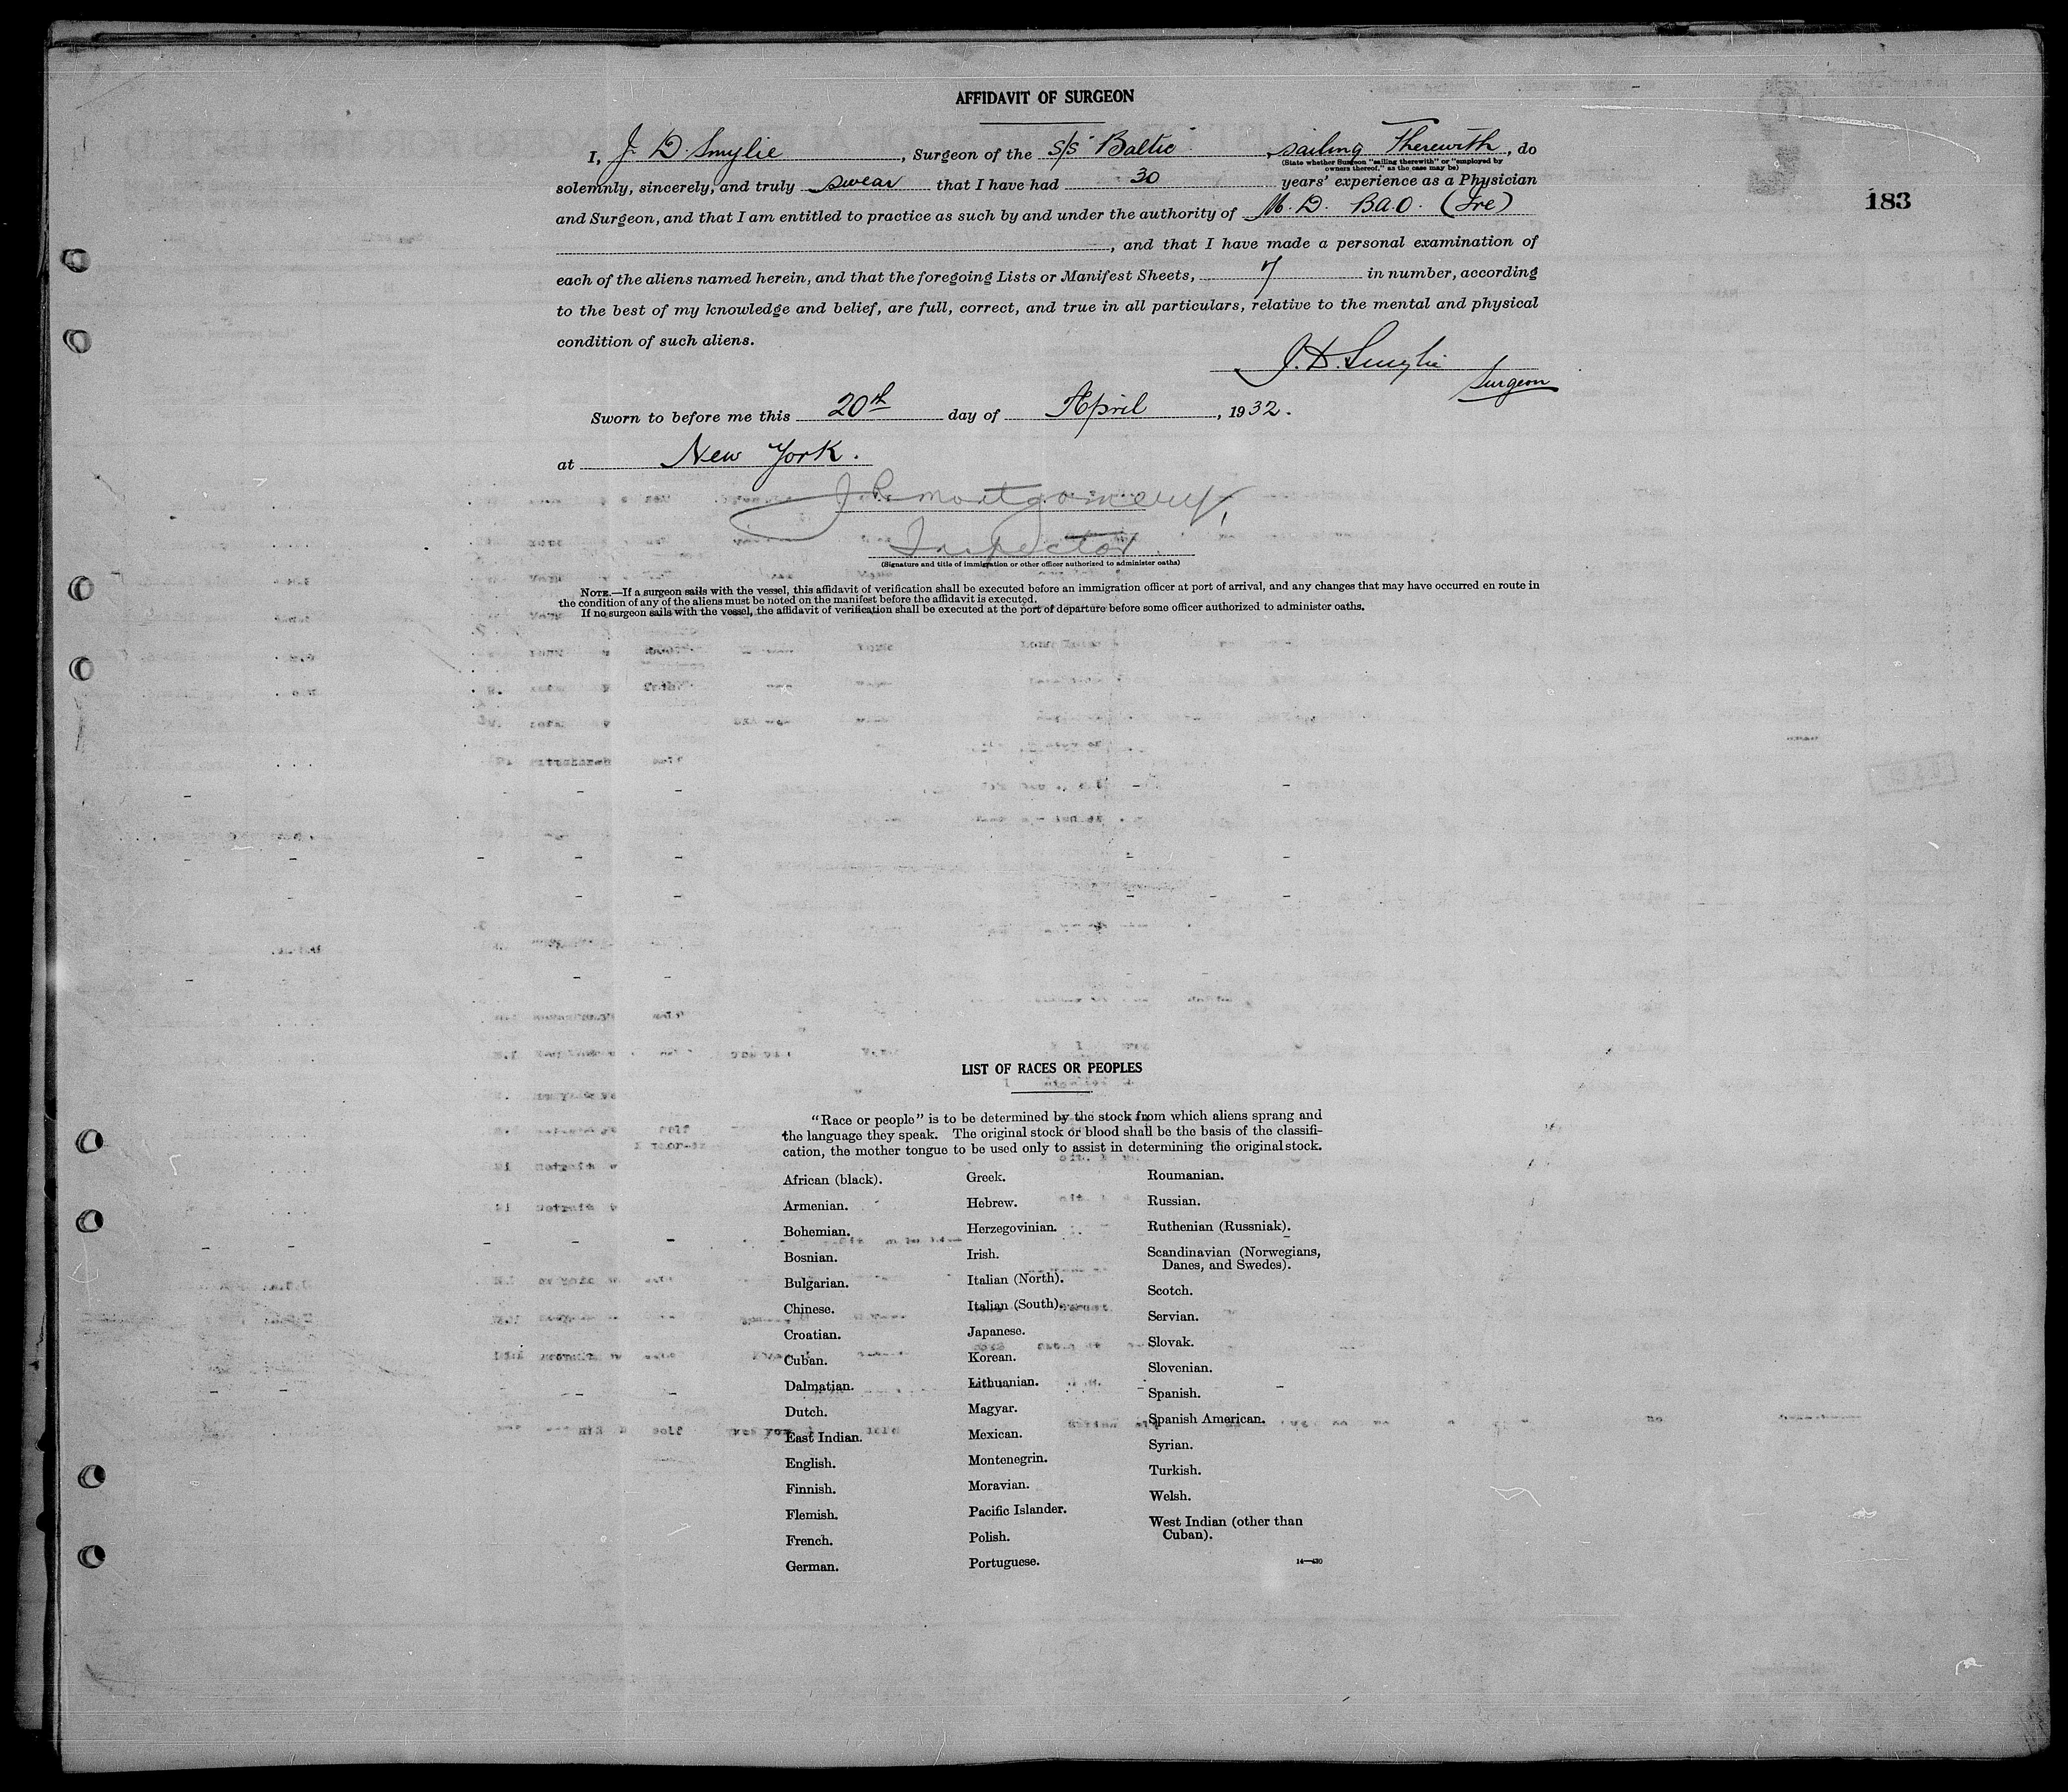 AFFIDAVIT OF SURGEON
183
I, J. D. Smylie, Surgeon of the S/S "Baltic", sailing Therewith, do
(State whether Surgeon "sailing therewith" or "employed by
owners thereof," as the case may be)
solemnly, sincerely, and truly swear that I have had 30 years' experience as a Physician
and Surgeon, and that I am entitled to practice as such by and under the authority of M.D. B.A.O. (Ire)
, and that I have made a personal examination of
each of the aliens named herein, and that the foregoing Lists or Manifest Sheets, 7 in number, according
to the best of my knowledge and belief, are full, correct, and true in all particulars, relative to the mental and physical
condition of such aliens.
J. D. Smylie
Surgeon
Sworn to before me this 20th day of April, 1932.
at New York.
Montgomery,
Inspector.
(Signature and title of immigration or other officer authorized to administer oaths)
NOTE.—If a surgeon sails with the vessel, this affidavit of verification shall be executed before an immigration officer at port of arrival, and any changes that may have occurred en route in
the condition of any of the aliens must be noted on the manifest before the affidavit is executed.
If no surgeon sails with the vessel, the affidavit of verification shall be executed at the port of departure before some officer authorized to administer oaths.
LIST OF RACES OR PEOPLES
"Race or people" is to be determined by the stock from which aliens sprang and
the language they speak. The original stock or blood shall be the basis of the classifi-
cation, the mother tongue to be used only to assist in determining the original stock.
African (black).
Armenian.
Bohemian.
Bosnian.
Bulgarian.
Chinese.
Croatian.
Cuban.
Dalmatian.
Dutch.
East Indian.
English.
Finnish.
Flemish.
French.
German.
Greek.
Hebrew.
Herzegovinian.
Irish.
Italian (North).
Italian (South).
Japanese.
Korean.
Lithuanian.
Magyar.
Mexican.
Montenegrin.
Moravian.
Pacific Islander.
Polish.
Portuguese.
Roumanian.
Russian.
Ruthenian (Russniak).
Scandinavian (Norwegians,
Danes, and Swedes).
Scotch.
Servian.
Slovak.
Slovenian.
Spanish.
Spanish American.
Syrian.
Turkish.
Welsh.
West Indian (other than
Cuban).
14—430